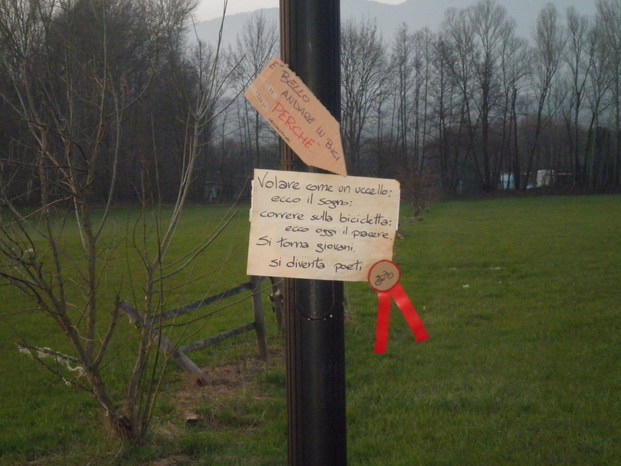 E' BELLO
ANDARE IN BICI
PERCHÉ
Volare come un uccello:
ecco il sogno;
correre sulla bicicletta:
ecco oggi il piacere.
Si torna giovani.
si diventa poeti